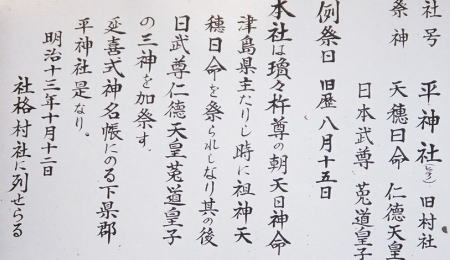 社号 平神社 旧村社
祭神 天穂日命 仁徳天皇
日本武尊 菟道皇子
例祭日 旧歴八月十五日
本社は瓊々杵尊の朝天日神命
津島県主たりし時に祖神天
穂日命を祭られしなり其の後
日武尊仁徳天皇菟道皇子
の三神を加祭す
延喜式神名帳にのる下県郡
平神社是なり。
明治十三年十月十二日
社格村社に列せらる